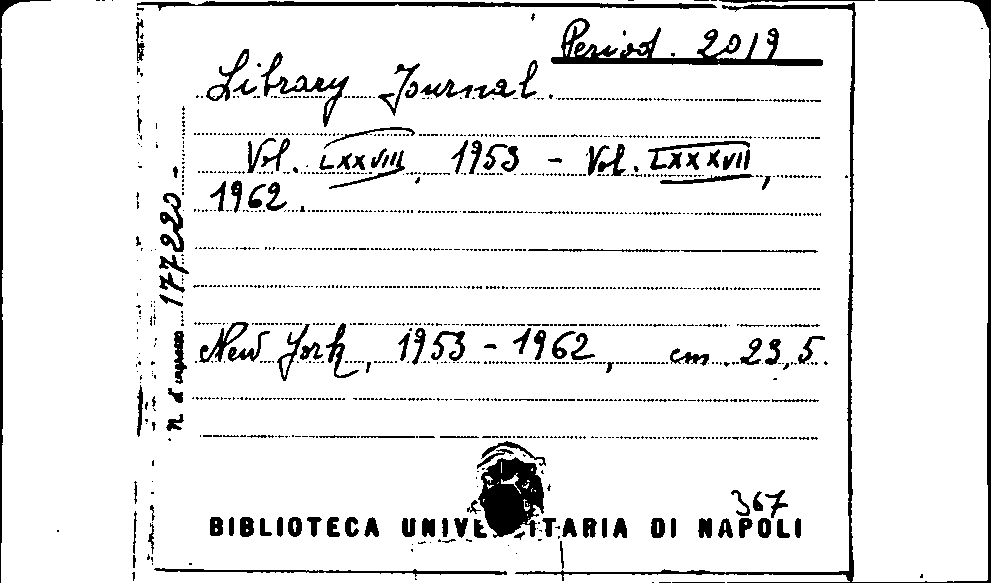 Period. 2019
Library Journal.
Vol. LXXVIII, 1953 - Vol. LXXXVII,
1962.
New York, 1953 - 1962, cm 23,5.
N. d'ingresso 177220 -
367
BIBLIOTECA UNIVERSITARIA DI NAPOLI